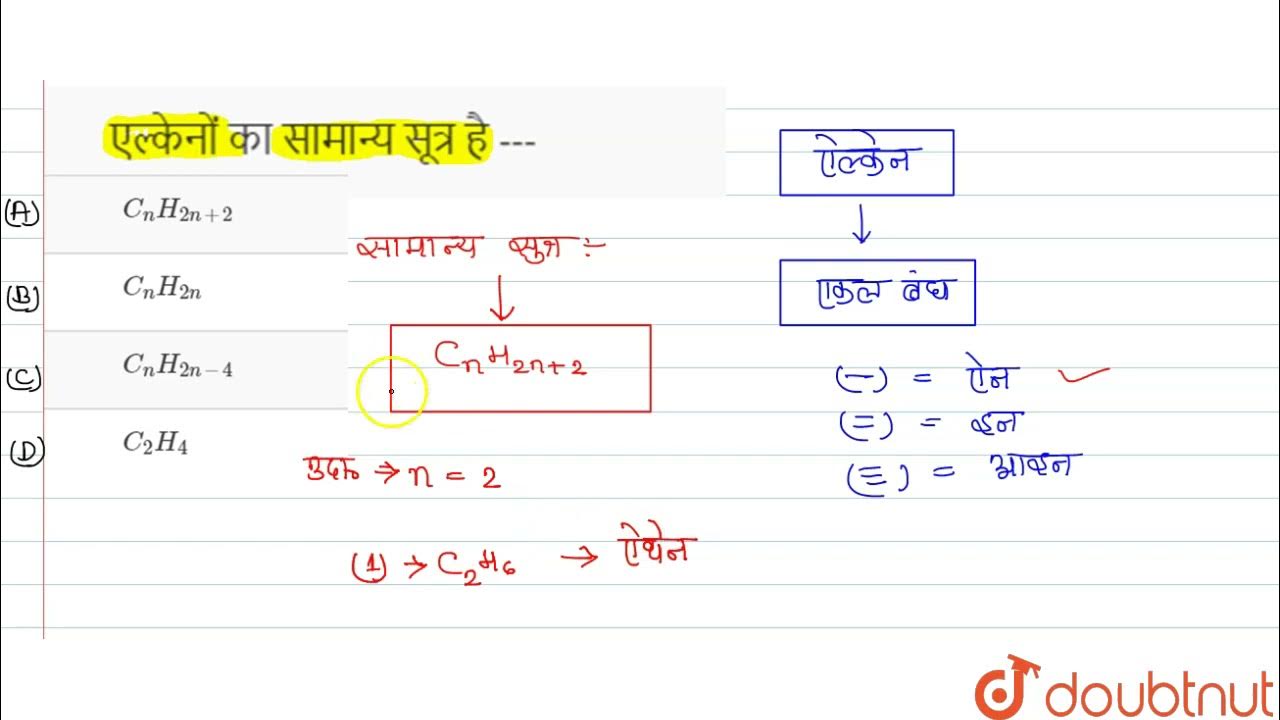 एल्केनों का सामान्य सूत्र है ---
(A) CₙH₂ₙ₊₂
(B) CₙH₂ₙ
(C) CₙH₂ₙ₋₄
(D) C₂H₄
सामान्य सुत्र :-
↓
CₙH₂ₙ₊₂
उदा० → n = 2
(1) → C₂H₆ → ऐथेन
ऐल्केन
↓
एकल बंध
(—) = ऐन ✓
(=) = इन
(≡) = आइन
doubtnut